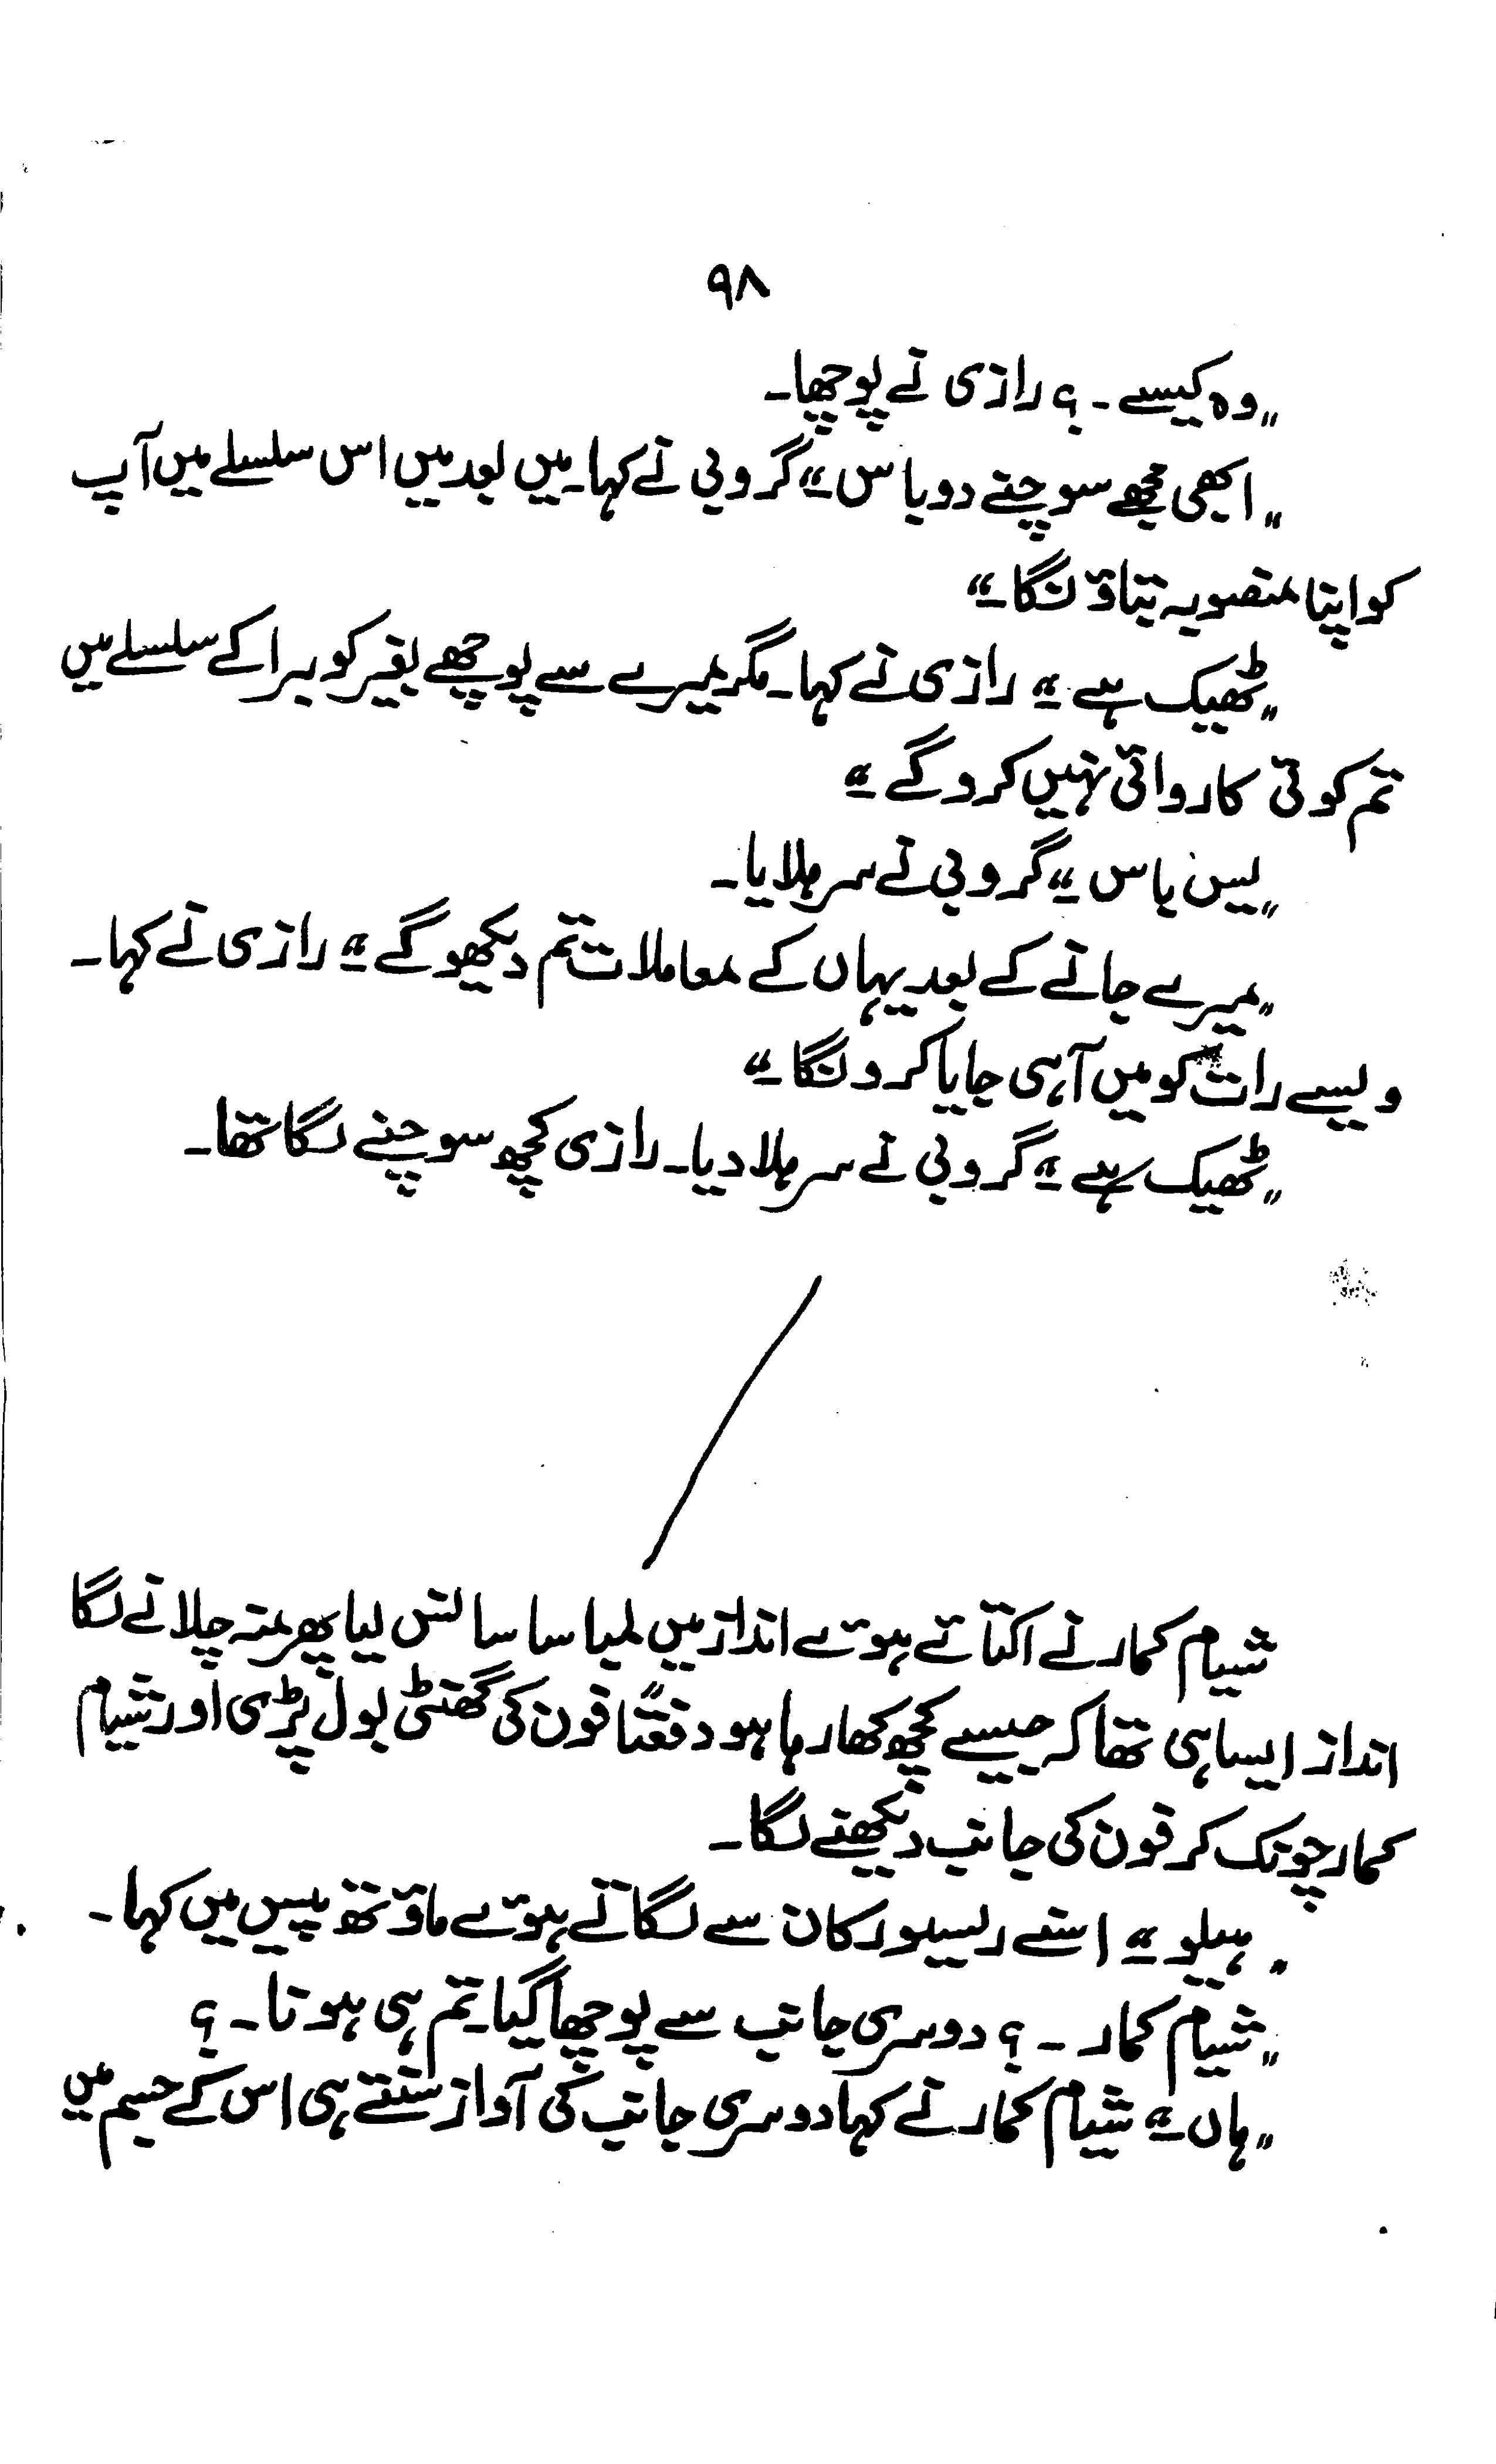 ۹۸
"وہ کیسے ۔ ؟ رازی نے پوچھا۔
"ابھی مجھے سوچنے دو باس ۔" گروبی نے کہا۔ میں بعد میں اس سلسلے میں آپ
کو اپنا منصوبہ بتاؤنگا۔"
"ٹھیک ہے ۔" رازی نے کہا۔ مگر میرے سے پوچھے بغیر کوبرا کے سلسلے میں
تم کوئی کاروائی نہیں کروگے ۔"
"یس باس ۔" گروبی نے سر ہلایا۔
"میرے جانے کے بعد یہاں کے معاملات تم دیکھو گے ۔" رازی نے کہا۔
ویسے رات کو میں آ ہی جایا کرونگا ۔"
"ٹھیک ہے ۔" گروبی نے سر ہلا دیا۔ رازی کچھ سوچنے لگا تھا۔
شیام کمار نے اکتائے ہوئے انداز میں لمبا سا سانس لیا پھر منہ چلانے لگا
انداز ایسا ہی تھا کہ جیسے کچھ کھا رہا ہو دفعتاً فون کی گھنٹی بول پڑی اور شیام
کمار چونک کر فون کی جانب دیکھنے لگا۔
"ہیلو ۔" اسنے ریسیور کان سے لگاتے ہوئے ماؤتھ پیس میں کہا۔
"شیام کمار ۔ ؟ دوسری جانب سے پوچھا گیا۔ تم ہی ہو نا۔ ؟
"ہاں ۔" شیام کمار نے کہا دوسری جانب کی آواز سنتے ہی اس کے جسم میں